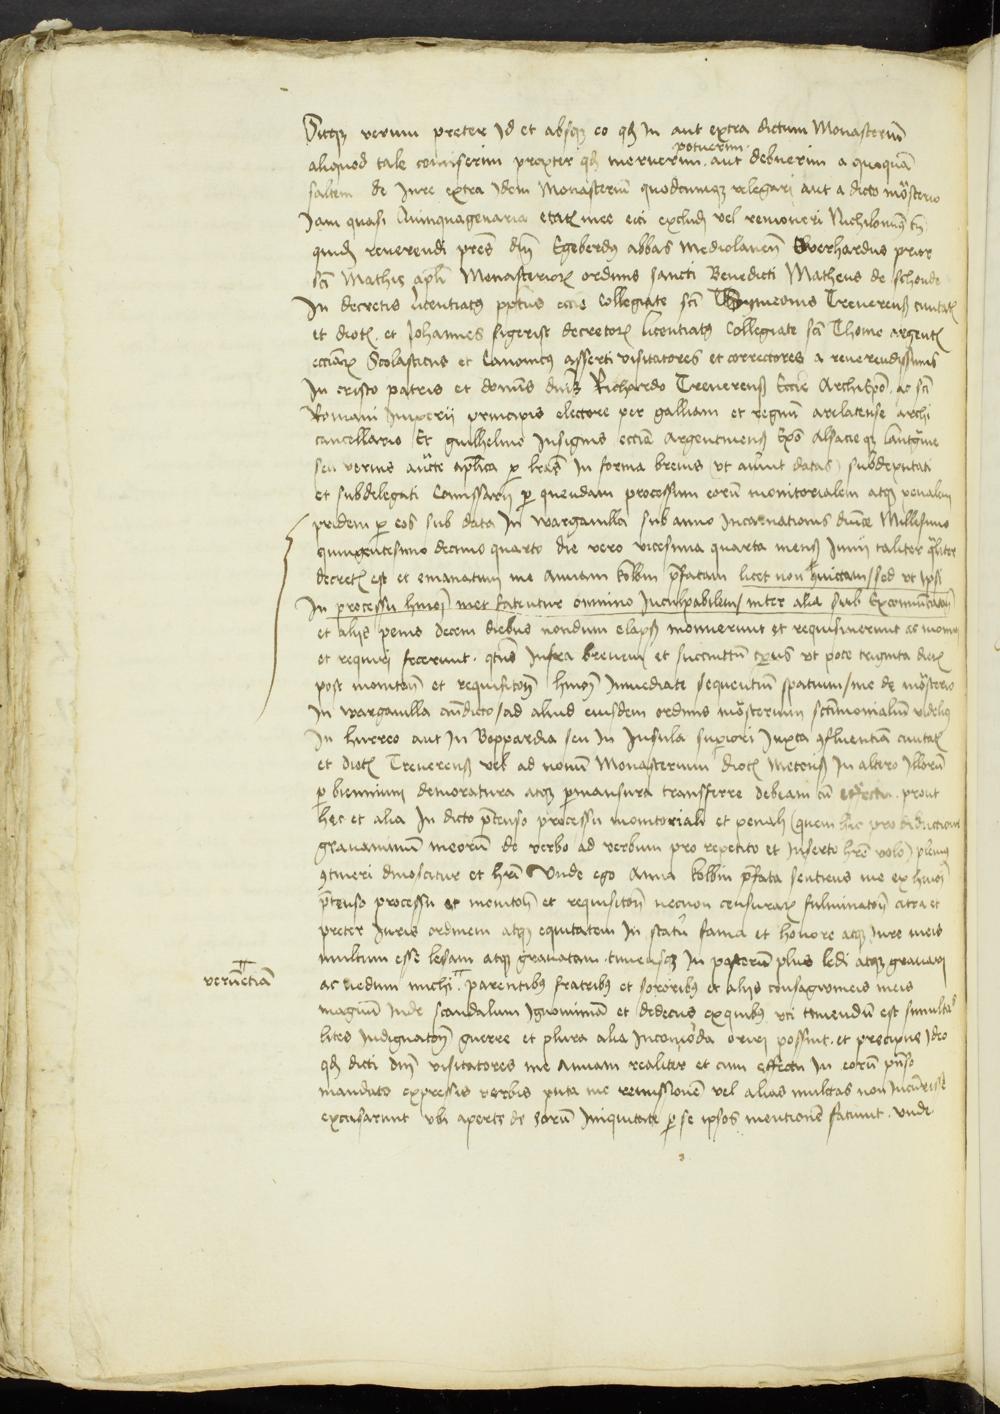 Sitq3 verum preter Id et absq3 eo qd In aut extra dictum Monasteriũ
aliquod tale com̃iserim propter qd meruerim potuerim aut debuerim a quoquã
saltem de Jure extra Idem Monasteriũ quodcumq3 relegari aut a dicto mõsterio
Jam quasi Quinquagenaria etatis mee eici excludi vel remoueri Nichilominus
quidem reuerendi pres dñi Egeberdus abbas Mediolaceñ Eberhardus prior
sci Mathie apli Monasteriorum ordinis sancti Benedicti Matheus de schonde
In decretis licentiatus ppõtus eccie Collegiate sci Symeonis Treuereñ ciuitatis
et dioc. et Johannes sigerist decretorum licentiatus Collegiate sci Thome argent
ecciarum Scolasticus et Canonicus asserti visitatores et correctores a reuerendissimis
In cristo patris et domĩs dñis Richardo Treuereñ Eccie Archiepõ. ac sci
Romani Imperij principis electore per galliam et regnũ arelatense archi
cancellario Et guilhelmo Insignis eccie Argentineñ Epõ Alsacieq3 lantgrauie
seu verius aucte aplica p lras In forma breuis (vt aiũnt datas) subdeputati
et subdelegati Comissarij p quendam processum eorũ monitorialem atq3 penalem
pridem p eos sub data In wargauilla sub anno Incarnationis diuine Millesimo
quingentesimo decimo quarto die vero vicesima quarta mensis Junij taliter qualiter
decretum est et emanatum me Annam kolbin prefatam licet non conuictam / sed vt ipsi
In processu hmoi met fatentur omnino Inculpabilem / inter alia sub Excomunicationis
et alijs penis decem diebus nondum elapsis monuerunt et requisiuerunt ac moneri
et requiri fecerunt. qtus Infra breuem et succinctũ tpus vt pote triginta dierum
post monitionẽ et requisitionẽ hmoi Imediate sequentiũ spatium / me de mõsterio
In wargauilla ãndicto / ad aliud eiusdem ordinis mõsterium sctimonialiũ videlicet
In hurreo aut In Boppardia seu In Insula superiori Juxta confluentiã ciuitatis
et dioc. Treuereñ vel ad nouũ Monasterium dioc. Meteñ In altero Illorũ
p bienniũ demoratura atq3 permansura transferre debeam cũ effectu. prout
hec et alia In dicto ptenso processu monitoriali et penali (quem hic pro deductione
grauaminũ meorũ de verbo ad verbum pro repetito et Inserto hre volo) plenius
contineri dinoscitur et hr̃i Vnde ego Anna kolbin prefata sentiens me ex hmoi
ptenso processu et monitionẽ et requisitionẽ necnon censurarum fulminationẽ citra et
preter Juris ordinem atq3 equitatem In statu fama et honore atq3 Jure meis
multum esse lesam atq3 grauatam. timensq3 In posterũ plus ledi atq3 grauari
ac nedum michi. parentibus fratribus et sororibus et alijs consaguineis meis
verũetiã
magnũ Inde scandalum Ignominiã et dedecus exquibus vti timendũ est simultates
lites Indignationẽ guerre et plura alia Incomoda oriri possint. et precipue Ideo
qd dicti dñi visitatores me Annam realiter et cum effectu In eorũ ptenso
mandato expressis verbis puta me remissionẽ vel alias mulctas non Incurrisse
excusarunt vbi aperte de eorũ Iniquitate p se ipsos mentionẽ faciunt. vnde